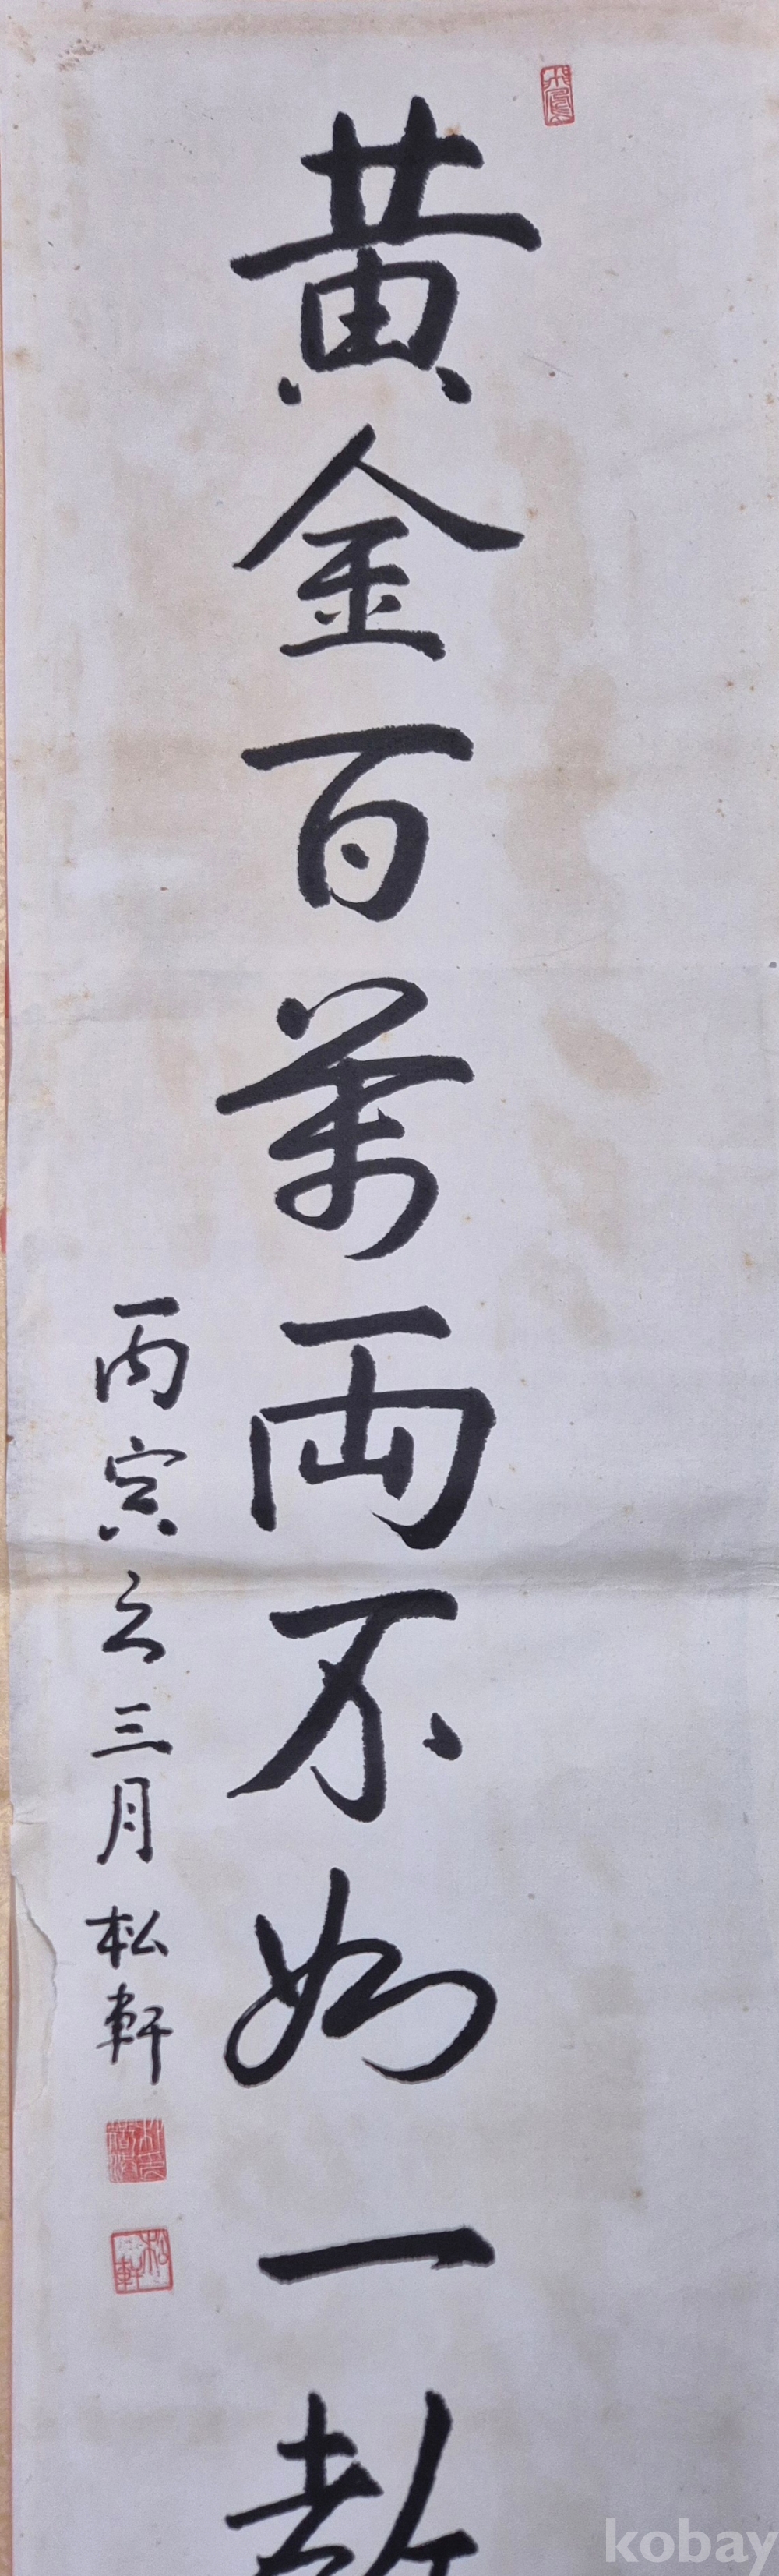 黃金百萬両不如一教
丙寅之三月 松軒
松軒
kobay